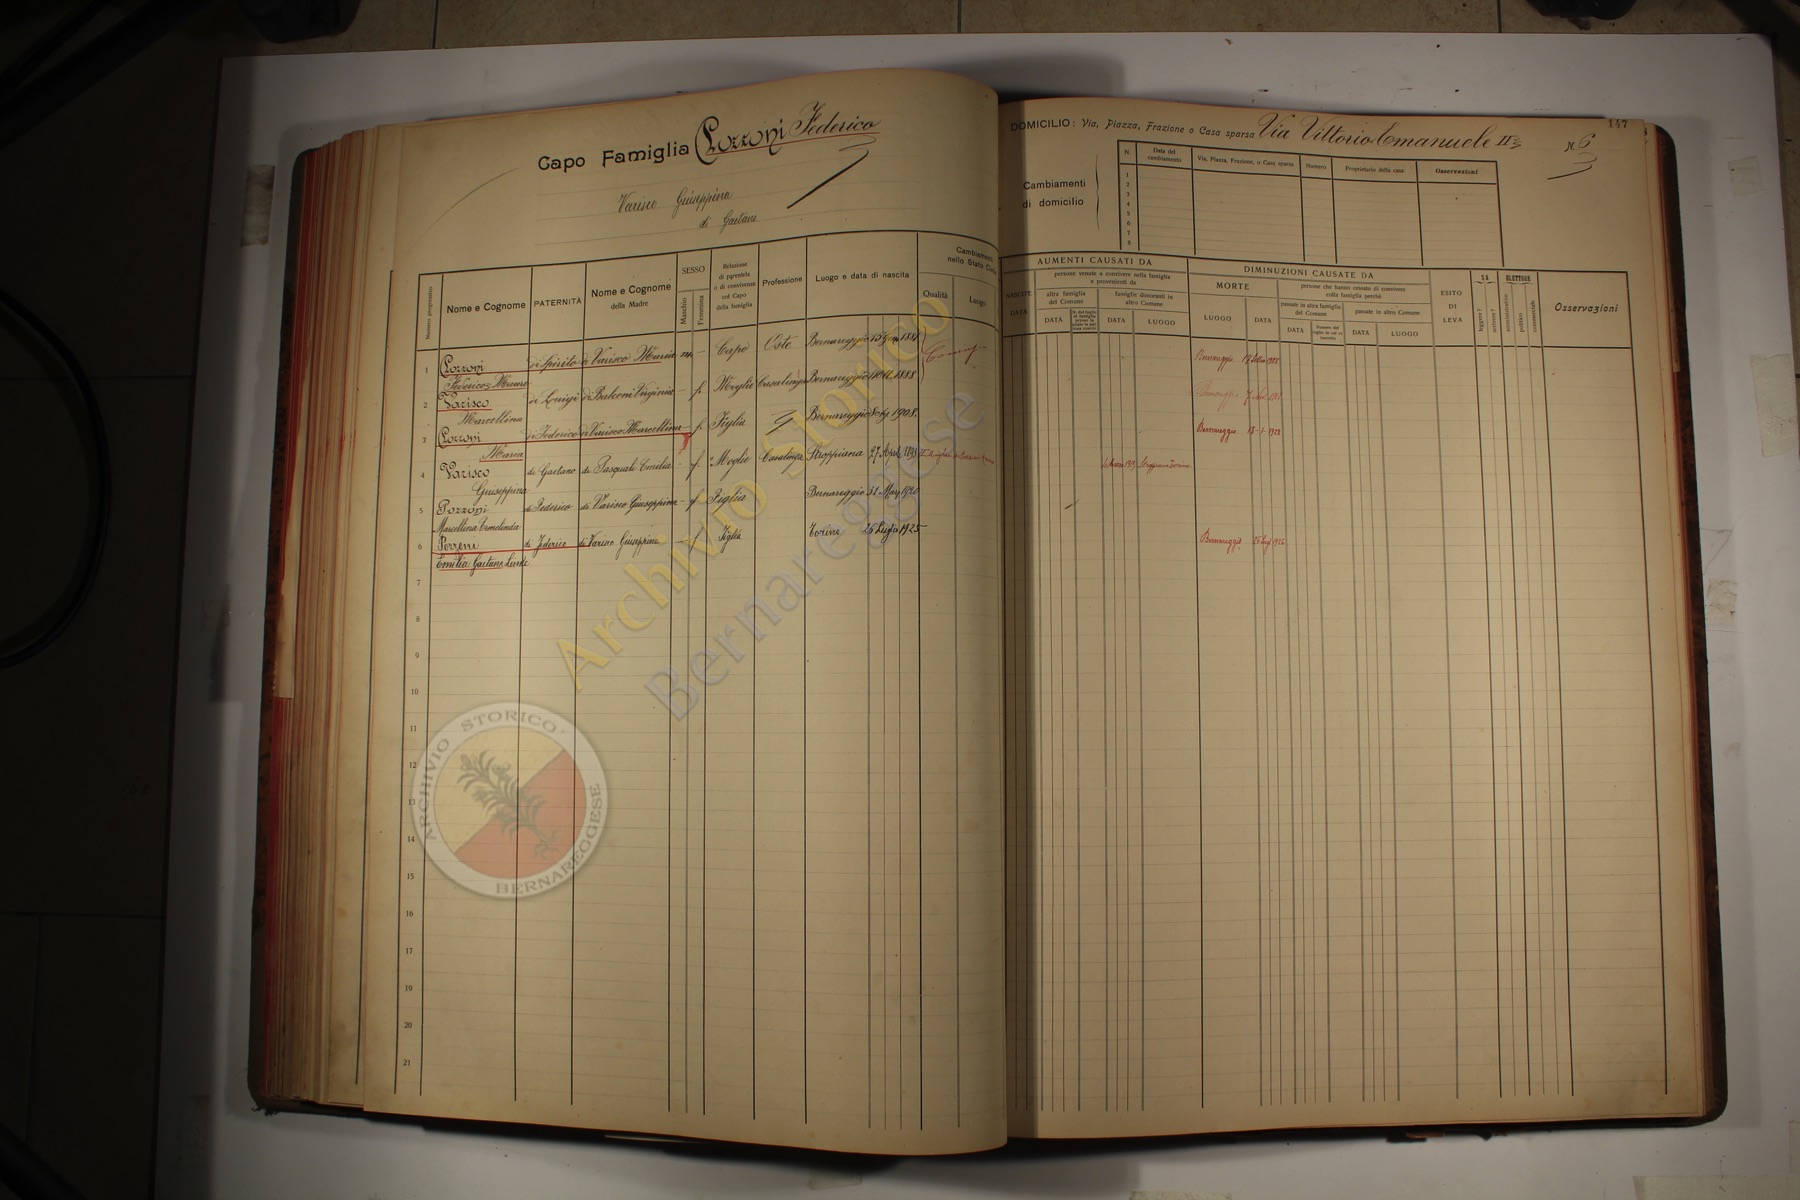 Capo Famiglia Pozzoni Federico
Varisco Giuseppina
di Gaetano
Numero progressivo
Nome e Cognome
PATERNITÀ
Nome e Cognome
della Madre
SESSO
Maschio
Femmina
Relazione
di parentela
o di convivenza
col Capo
della famiglia
Professione
Luogo e data di nascita
Cambiamenti
nello Stato Civile
Qualità
Luogo
1 Pozzoni di Spirito di Varisco Maria m. – Capo Oste Bernareggio 15 1881
Federico Mauro
2 Varisco di Luigi di Balconi Virginia – f. Moglie Casalinga Bernareggio 1888
Marcellina
3 Pozzoni di Federico di Varisco Marcellina – f. Figlia Bernareggio 1908.
Maria
4 Varisco di Gaetano di Pasquali Emilia – f. Moglie Casalinga Stroppiana 27 Apr. 1895
Giuseppina
5 Pozzoni di Federico di Varisco Giuseppina – f. Figlia Bernareggio 31 Mag 1920
Marcellina Ermelinda
6 Pozzoni di Federico di Varisco Giuseppina – f Figlia Torino 26 Luglio 1925
Emilia Gaetana
7
8
9
10
11
12
13
14
15
16
17
18
19
20
21
147
DOMICILIO: Via, Piazza, Frazione o Casa sparsa Via Vittorio Emanuele II N. 6
Cambiamenti
di domicilio
N.
Data del
cambiamento
Via, Piazza, Frazione, o Casa sparsa
Numero
Proprietario della casa
Osservazioni
1
2
3
4
5
6
7
8
AUMENTI CAUSATI DA
NASCITE
DATA
persone venute a convivere nella famiglia
a provenienti da
altra famiglia
del Comune
famiglie dimoranti in
altro Comune
DATA
DATA
LUOGO
DIMINUZIONI CAUSATE DA
MORTE
LUOGO
DATA
persone che hanno cessato di convivere
colla famiglia perchè
passate in altra famiglia
del Comune
passate in altro Comune
DATA
DATA
LUOGO
ESITO
DI
LEVA
SA
leggere?
scrivere?
ELETTORE
amministrativo
politico
commerciale
Osservazioni
Bernareggio
Bernareggio
Bernareggio 18-1-1928
Bernareggio 1926
Archivio Storico
Bernareggese
ARCHIVIO STORICO
BERNAREGGESE